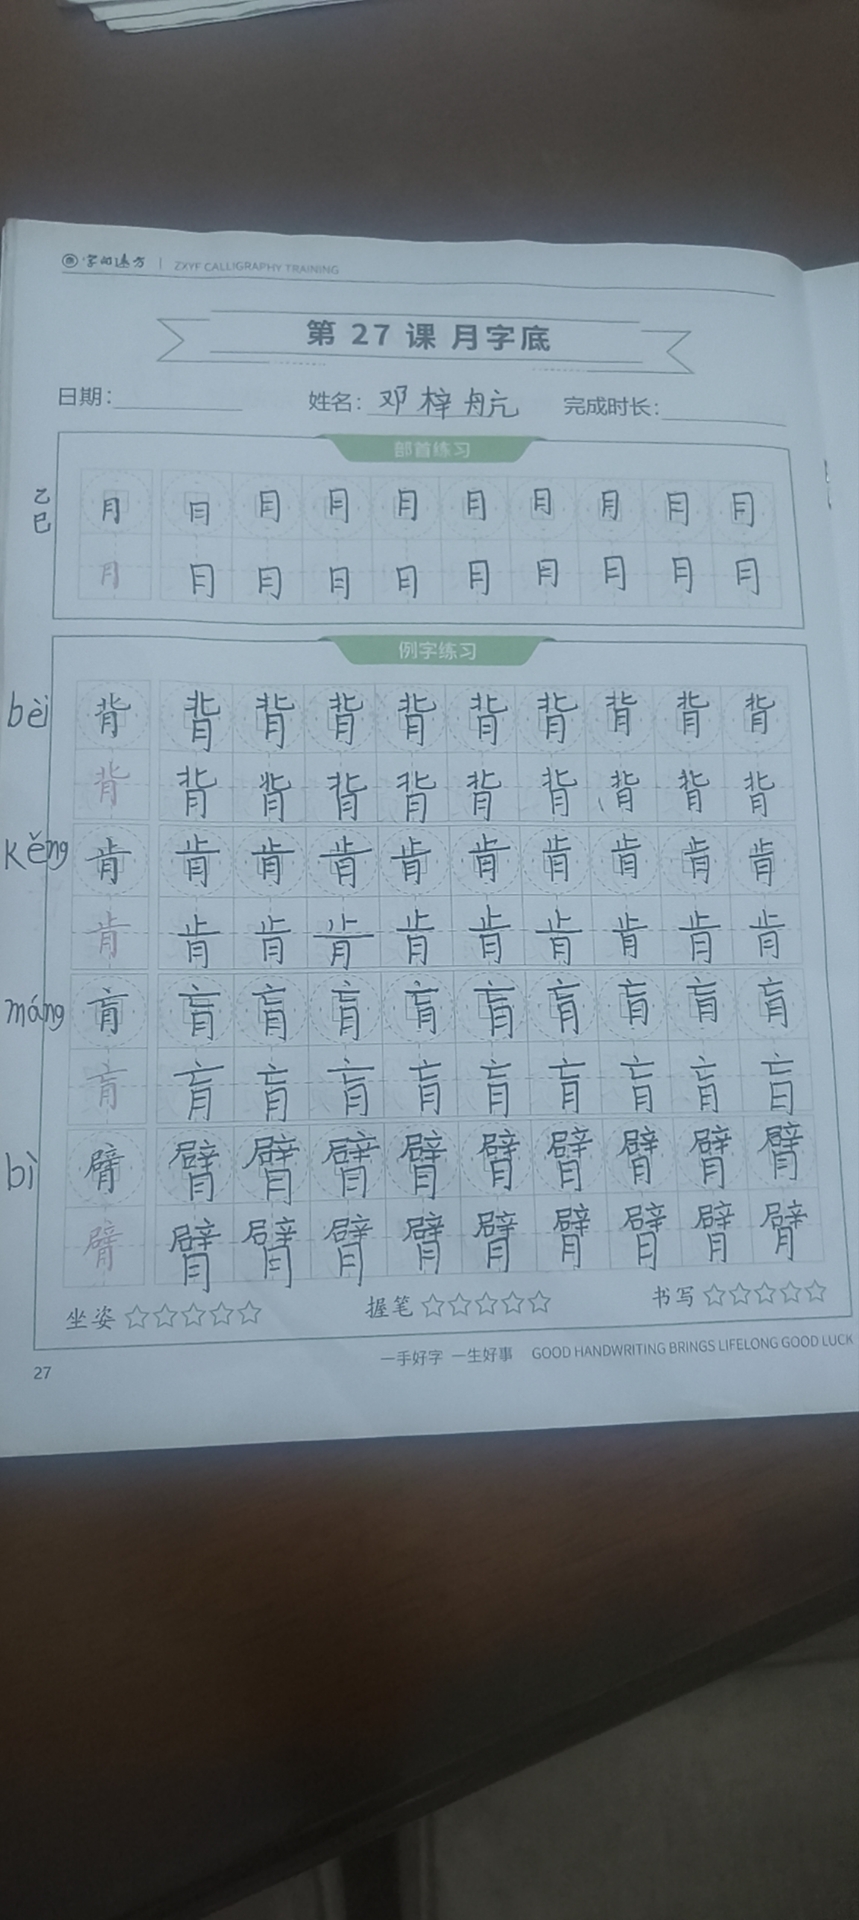 字的远方 | ZXYF CALLIGRAPHY TRAINING
第 27 课 月字底
日期: 姓名: 邓梓航 完成时长:
部首练习
乙 月 月 月 月 月 月 月 月 月 月
巳 月 月 月 月 月 月 月 月 月 月
例字练习
bèi 背 背 背 背 背 背 背 背 背 背
背 背 背 背 背 背 背 背 背 背
kěng 肯 肯 肯 肯 肯 肯 肯 肯 肯 肯
肯 肯 肯 肯 肯 肯 肯 肯 肯 肯
máng 肓 肓 肓 肓 肓 肓 肓 肓 肓 肓
肓 肓 肓 肓 肓 肓 肓 肓 肓 肓
bì 臂 臂 臂 臂 臂 臂 臂 臂 臂 臂
臂 臂 臂 臂 臂 臂 臂 臂 臂 臂
坐姿☆☆☆☆☆ 握笔☆☆☆☆☆ 书写☆☆☆☆☆
27 一手好字 一生好事 GOOD HANDWRITING BRINGS LIFELONG GOOD LUCK